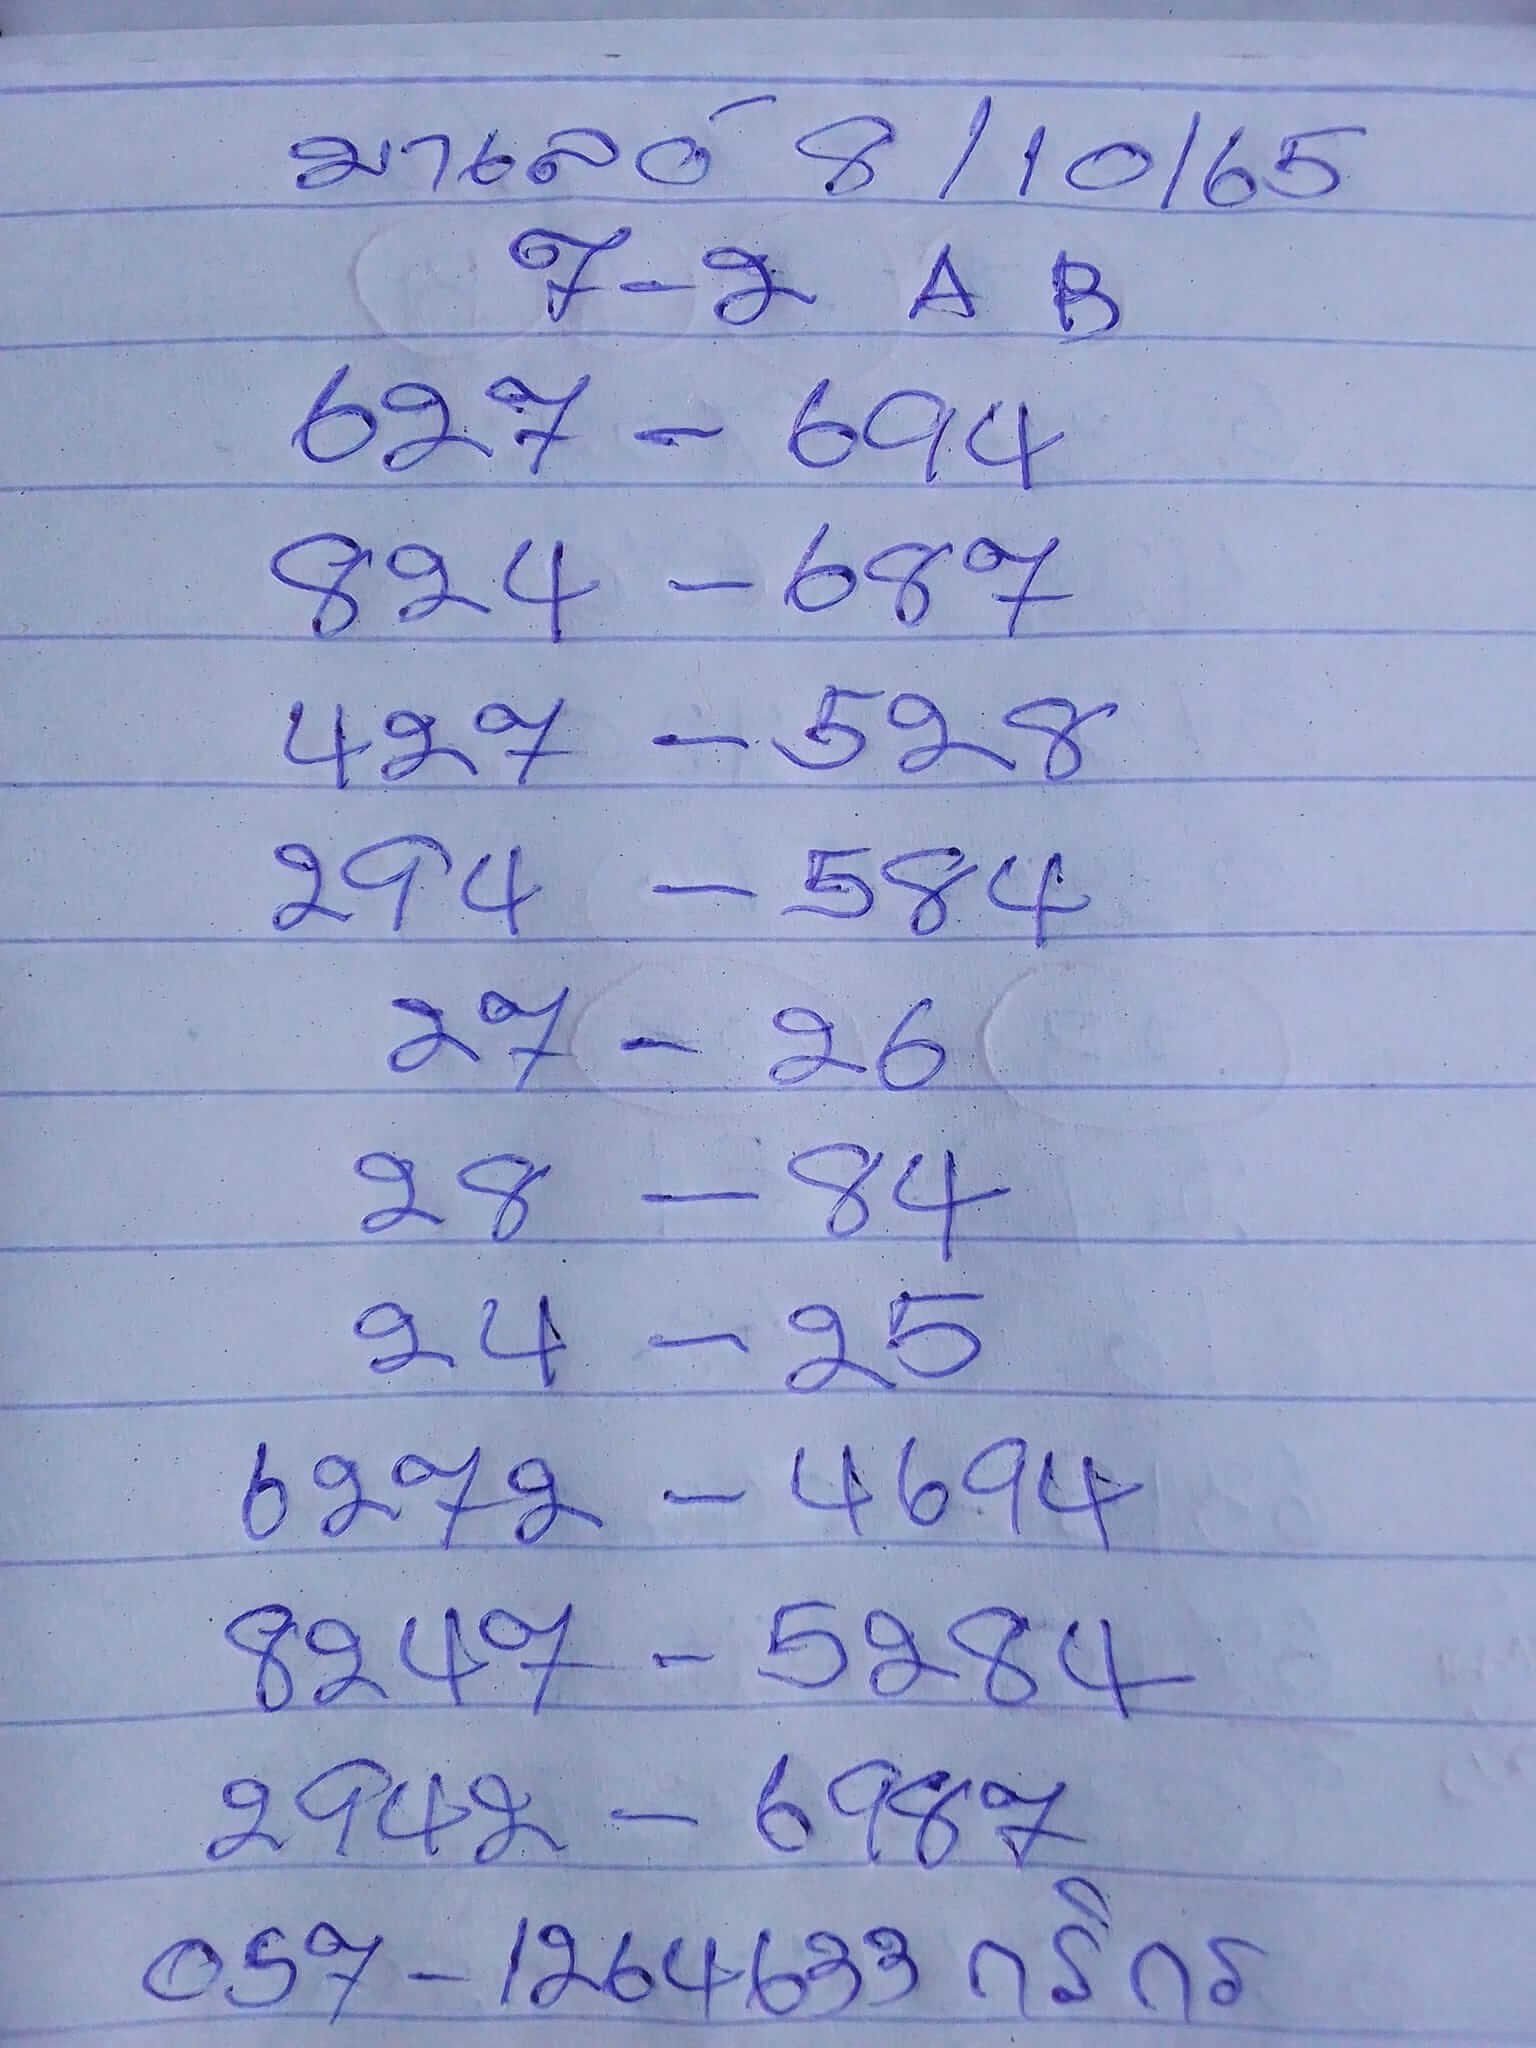 มาเลย์ 8/10/65
7-2 A B
627 - 694
824 - 687
427 - 528
294 - 584
27 - 26
28 - 84
24 - 25
6272 - 4694
8247 - 5284
2942 - 6987
057-1264633